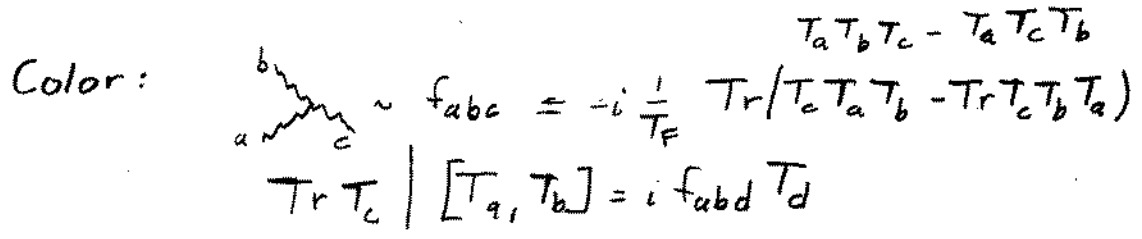 T_a T_b T_c - T_a T_c T_b
Color: b a c ~ f_{abc} = -i \frac{1}{T_F} Tr(T_c T_a T_b - Tr T_c T_b T_a)
Tr T_c | [T_a, T_b] = i f_{abd} T_d